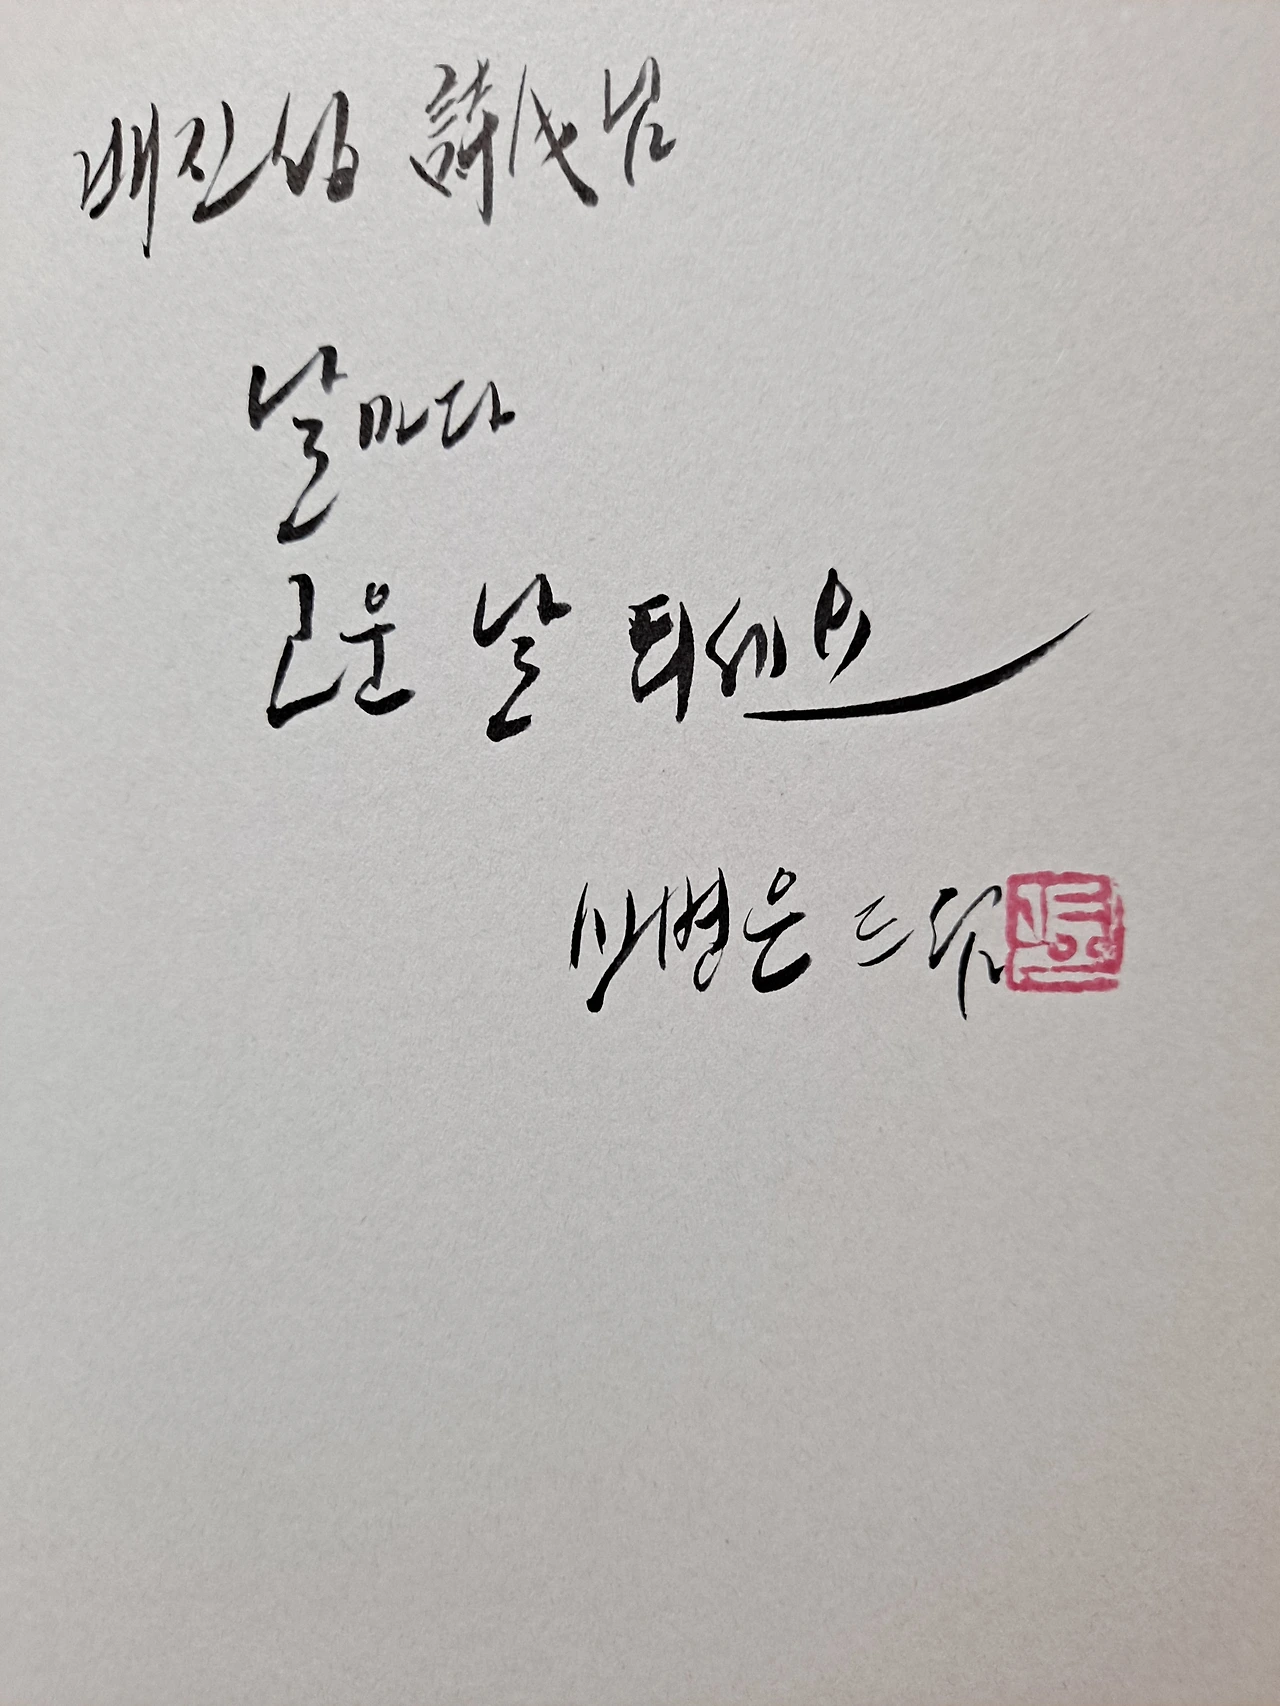 배진성 詩人님
날마다
고운 날 되세요
서병은 드림